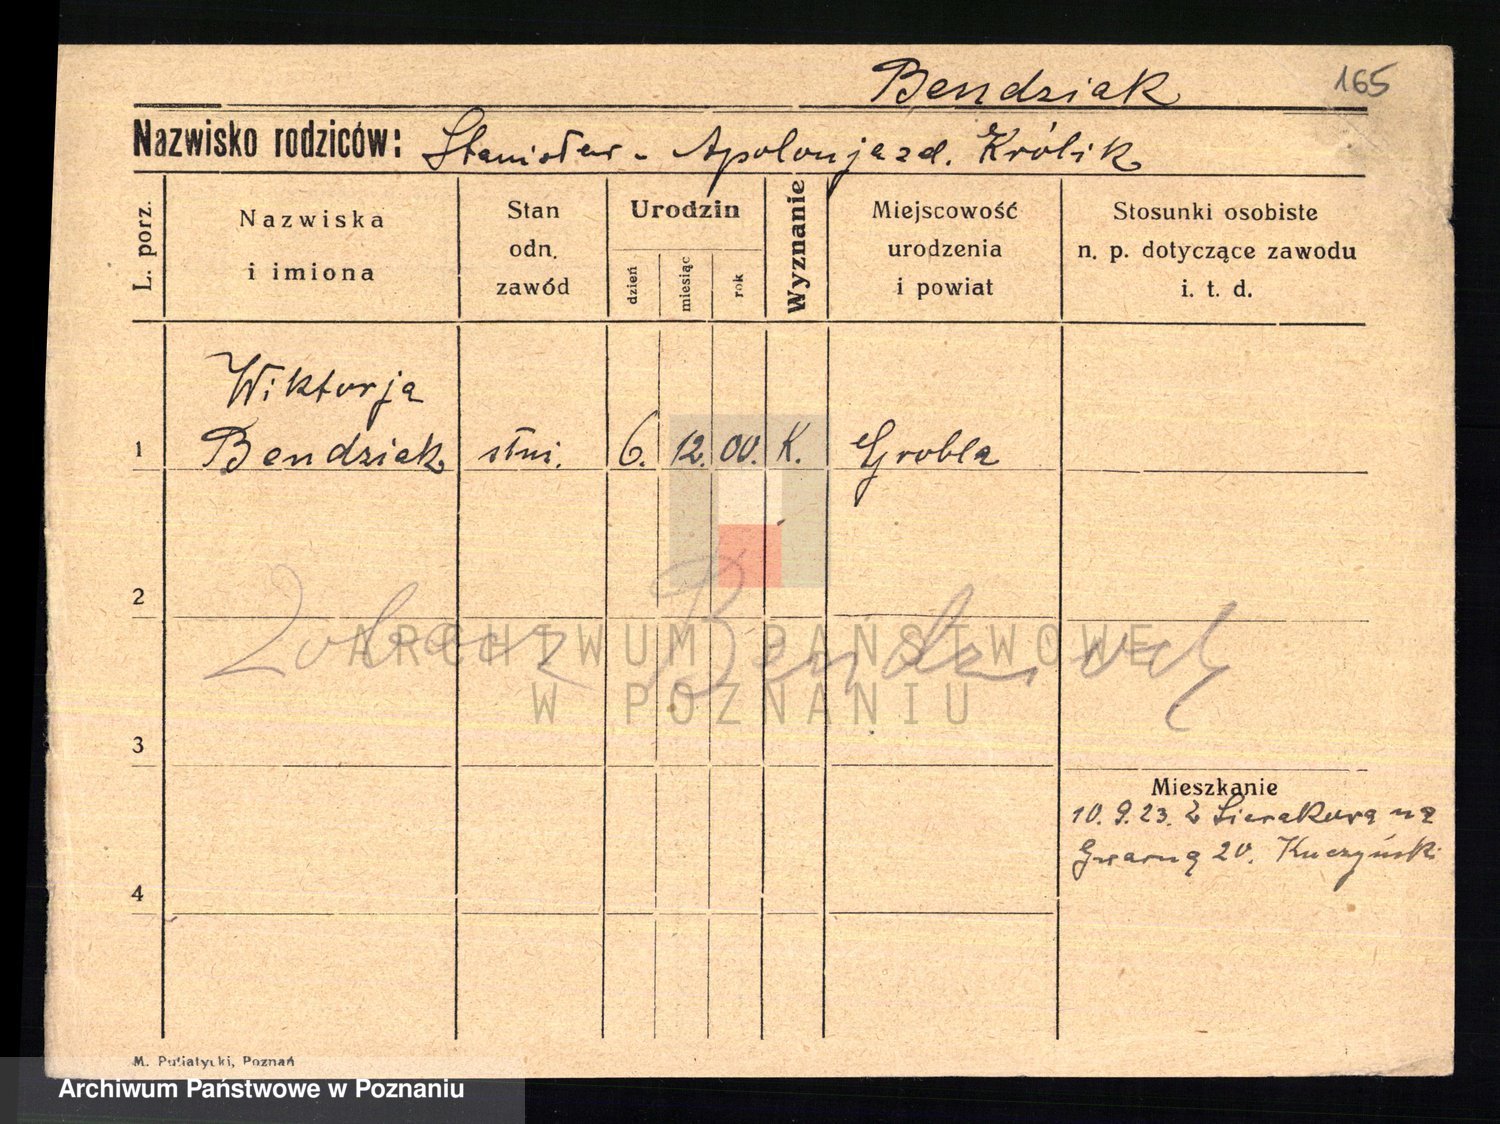 Bendziak 165
Nazwisko rodziców: Stanisław - Apolonja zd. Królik
L. porz.
Nazwiska
i imiona
Stan
odn.
zawód
Urodzin
dzień
miesiąc
rok
Wyznanie
Miejscowość
urodzenia
i powiat
Stosunki osobiste
n. p. dotyczące zawodu
i. t. d.
Wiktorja
1 Bendziak służ. 6. 12. 00. K. Grobla
2
Zobacz
ARCHIWUM PAŃSTWOWE
W POZNANIU
3
Mieszkanie
10. 9. 23. z Sierakowa na
Gwarną 20. Kuczyński
4
M. Putiatycki, Poznań
Archiwum Państwowe w Poznaniu